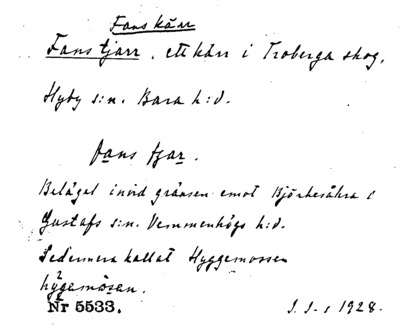 Fans kärr
Fans tjarr. ett kärr i Troberga skog,
Hyby s:n. Bara h:d.
fans tjar.
Beläget invid gränsen emot Björkesåkra i
Gustafs s:n. Vemmenhögs h:d.
Sedermera kallat Hyggemossen
hygemosen.
Nr 5533.
1928.